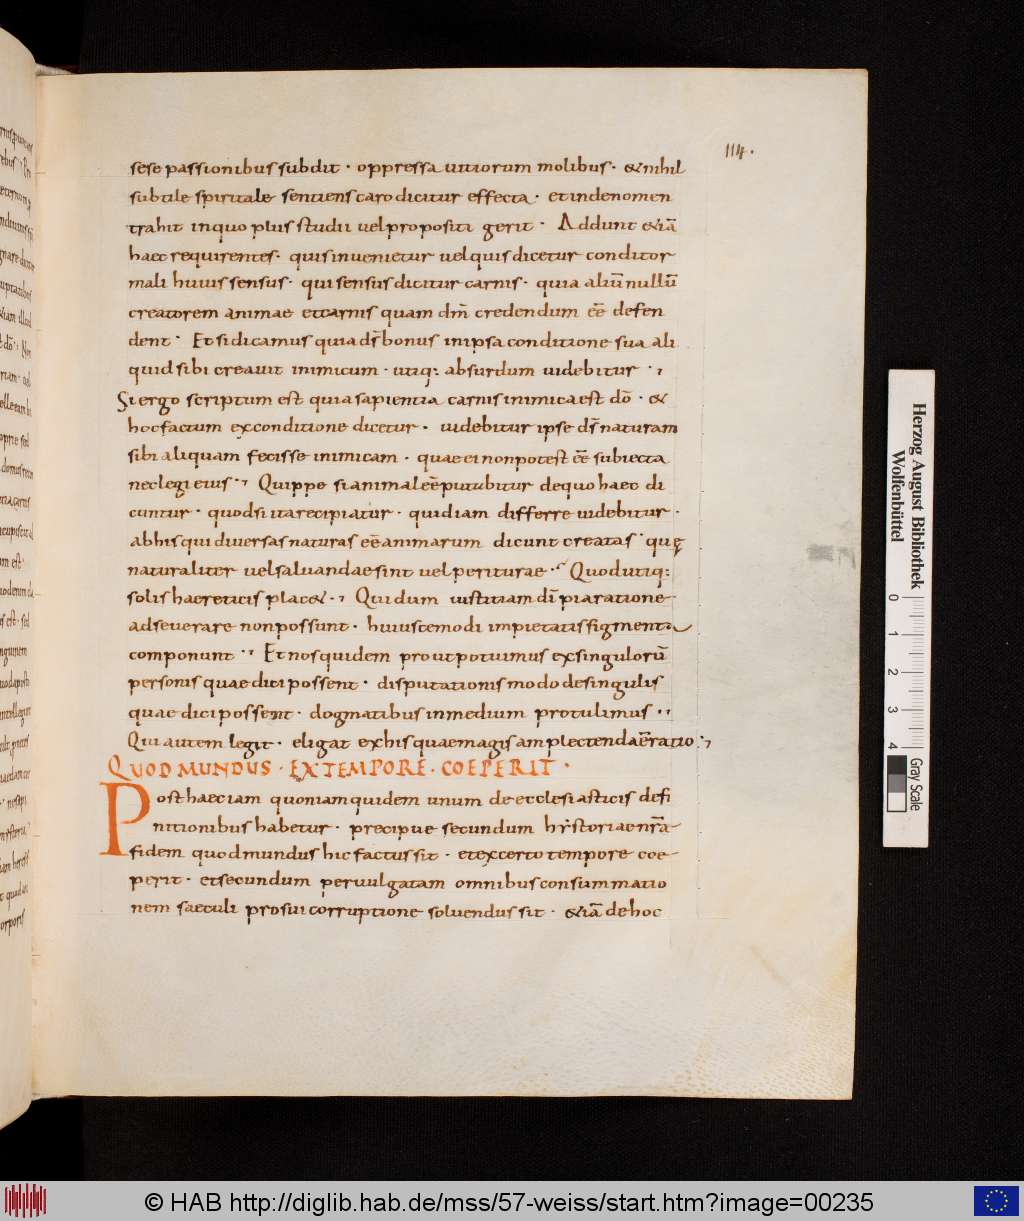 114.
sese passionibus subdit · oppressa uitiorum molibus · & nihil
subtile spiritale sentiens caro dicitur effecta · et inde nomen
trahit in quo plus studii uel propositi gerit · Addunt & iā
haec requirentes · quis inuenietur uel quis dicetur conditor
mali huius sensus · qui sensus dicitur carnis · quia aliū nullū
creatorem animae et carnis quam dm̄ credendum eē defen
dent · Et si dicamus quia ds̄ bonus in ipsa conditione sua ali
quid sibi creauit inimicum · utiq: absurdum uidebitur ·,
Si ergo scriptum est quia sapientia carnis inimica est dō · &
hoc factum ex conditione dicetur · uidebitur ipse ds̄ naturam
sibi aliquam fecisse inimicam · quae ei non potest eē subiecta
nec legi eius ·, Quippe si animal eē putubitur de quo haec di
cuntur · quod si ita recipiatur · quid iam differre uidebitur ·
ab his qui diuersas naturas eē animarum dicunt creatas · quę
naturaliter uel saluandae sint uel periturae · Quod utiq:
solis haereticis plac& ·, Qui dum iustitiam dī pia ratione
adseuerare non possunt · huiuscemodi impietatis figmenta
componunt ·, Et nos quidem prout potuimus ex singulorū
personis quae dici possent · disputationis modo de singulis
quae dici possent · dogmatibus in medium protulimus ·,
Qui autem legit · eligat ex his quae magis amplectenda ē ratio ·,
QUOD MUNDUS · EX TEMPORE · COEPERIT ·
Post haec iam quoniam quidem unum de ecclesiasticis defi
nitionibus habetur · precipue secundum hystoriae nr̄a
fidem quod mundus hic factus sit · et ex certo tempore coe
perit · et secundum peruulgatam omnibus consummatio
nem saeculi pro sui corruptione soluendus sit · & iā de hoc
Herzog August Bibliothek
Wolfenbüttel
0 1 2 3 4
Gray Scale
© HAB http://diglib.hab.de/mss/57-weiss/start.htm?image=00235